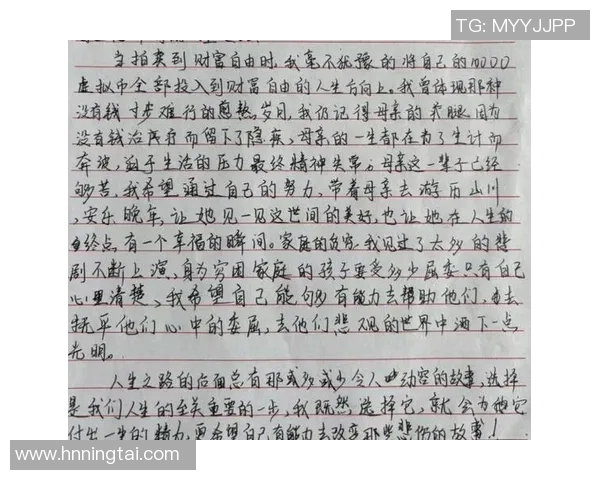 TG: MYYJJPP
当拍卖到财富自由时,我毫不犹豫的将自己的10000
虚拟币全部投入到财富自由的人生方向上。我曾体现那种
没有钱寸步难行的煎熬岁月,我仍记得母亲的来腿因有
没有钱治疗而留下了隐疾、母亲的一生都在为了生计而
奔波,迫于生活的压力最终精神失常。母亲这一辈子已经
够苦,我希望通过自己的努力,带着母亲去游历山川
,安乐晚年,让她见一见这世间的美好,也让她在人生的
终点有一个幸福的瞬间。家庭的贫穷,我见过了太多的悲
剧不断上演、身为穷困家庭的孩子要受多少屈委只有自己
心里清楚、我希望自己能够有能力去帮助他们,去
抚平他们心中的委屈,去他们悲观的世界中洒下一点
光明。
人生之路的后面总有那或多或少令人动容的故事,选择
是我们人生的至关重要的一步,我既然选择它,就会为他它
付出一生的精力,更希望自己有能力去改变那些悲伤的故事!
网站: www.hnningtai.com